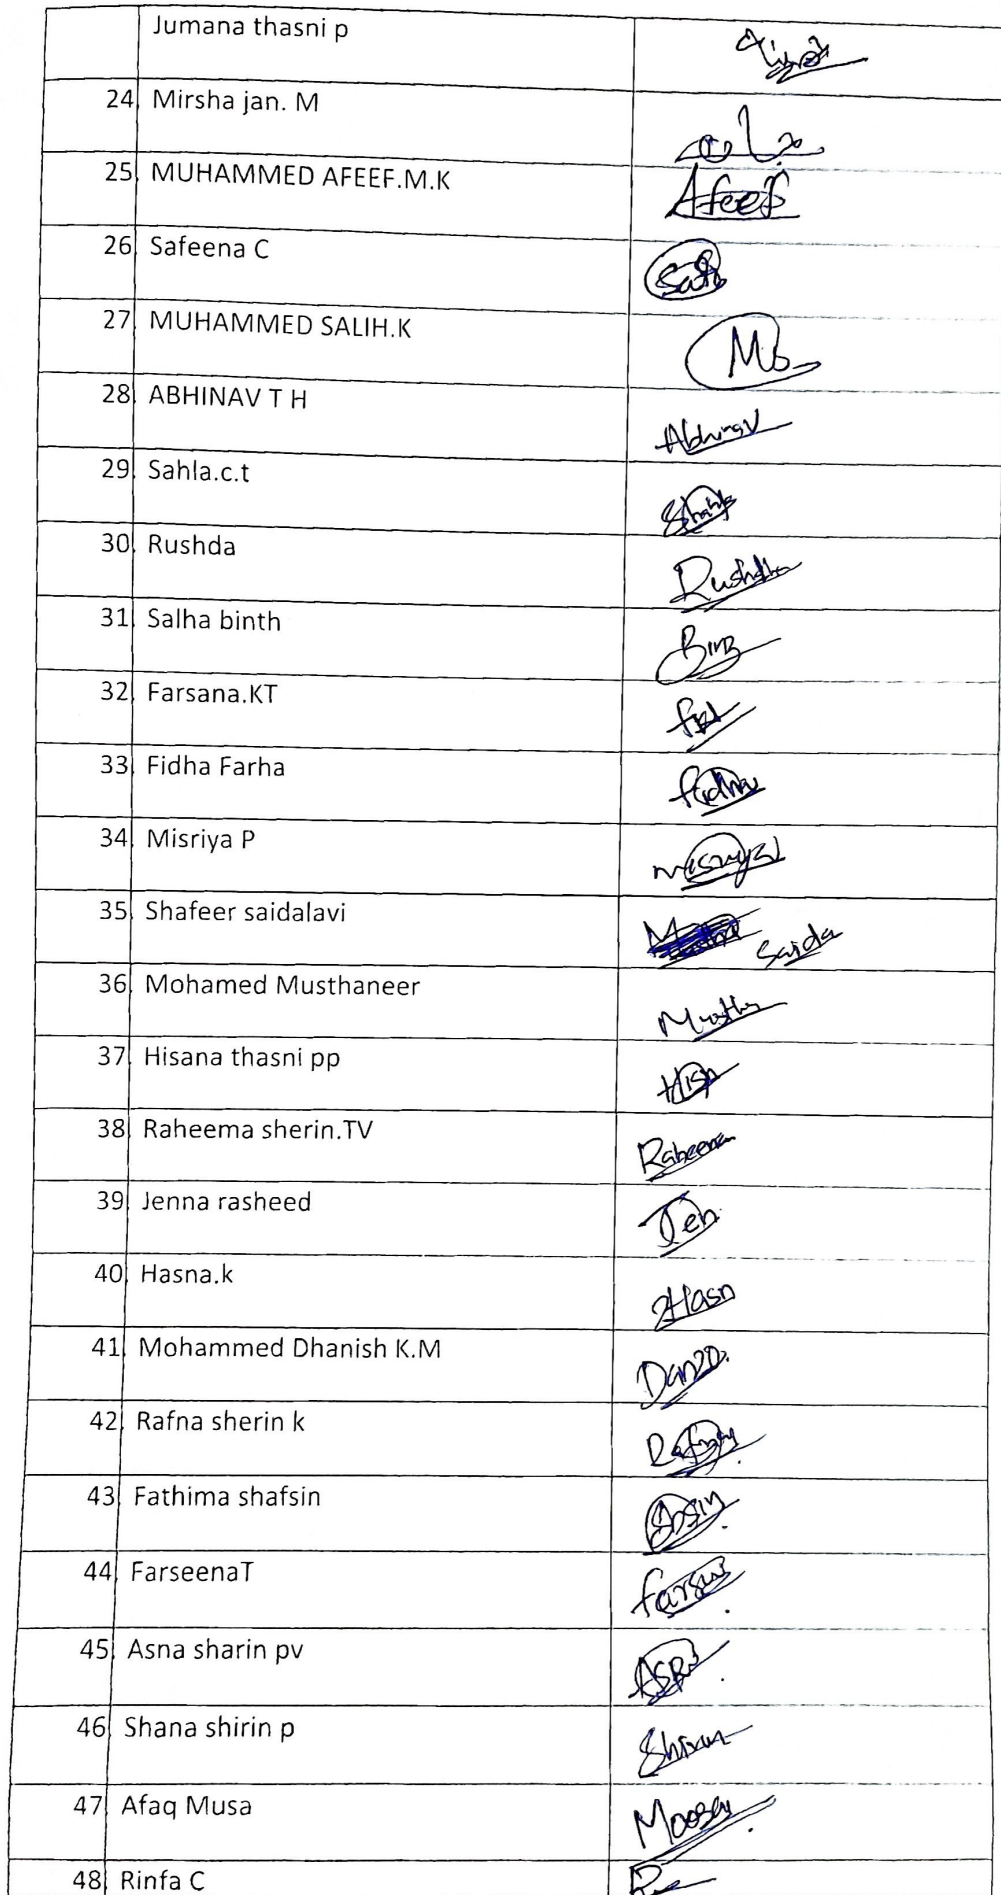 Jumana thasni p
24 Mirsha jan. M
25 MUHAMMED AFEEF.M.K Afeef
26 Safeena C Safe
27 MUHAMMED SALIH.K Ms
28 ABHINAV T H Abhinav
29 Sahla.c.t
30 Rushda Rushdha
31 Salha binth
32 Farsana.KT
33 Fidha Farha Fidha
34 Misriya P
35 Shafeer saidalavi Saida
36 Mohamed Musthaneer Mustha
37 Hisana thasni pp
38 Raheema sherin.TV Raheema
39 Jenna rasheed Jen
40 Hasna.k Hasn
41 Mohammed Dhanish K.M
42 Rafna sherin k
43 Fathima shafsin
44 FarseenaT
45 Asna sharin pv
46 Shana shirin p
47 Afaq Musa Moosa
48 Rinfa C